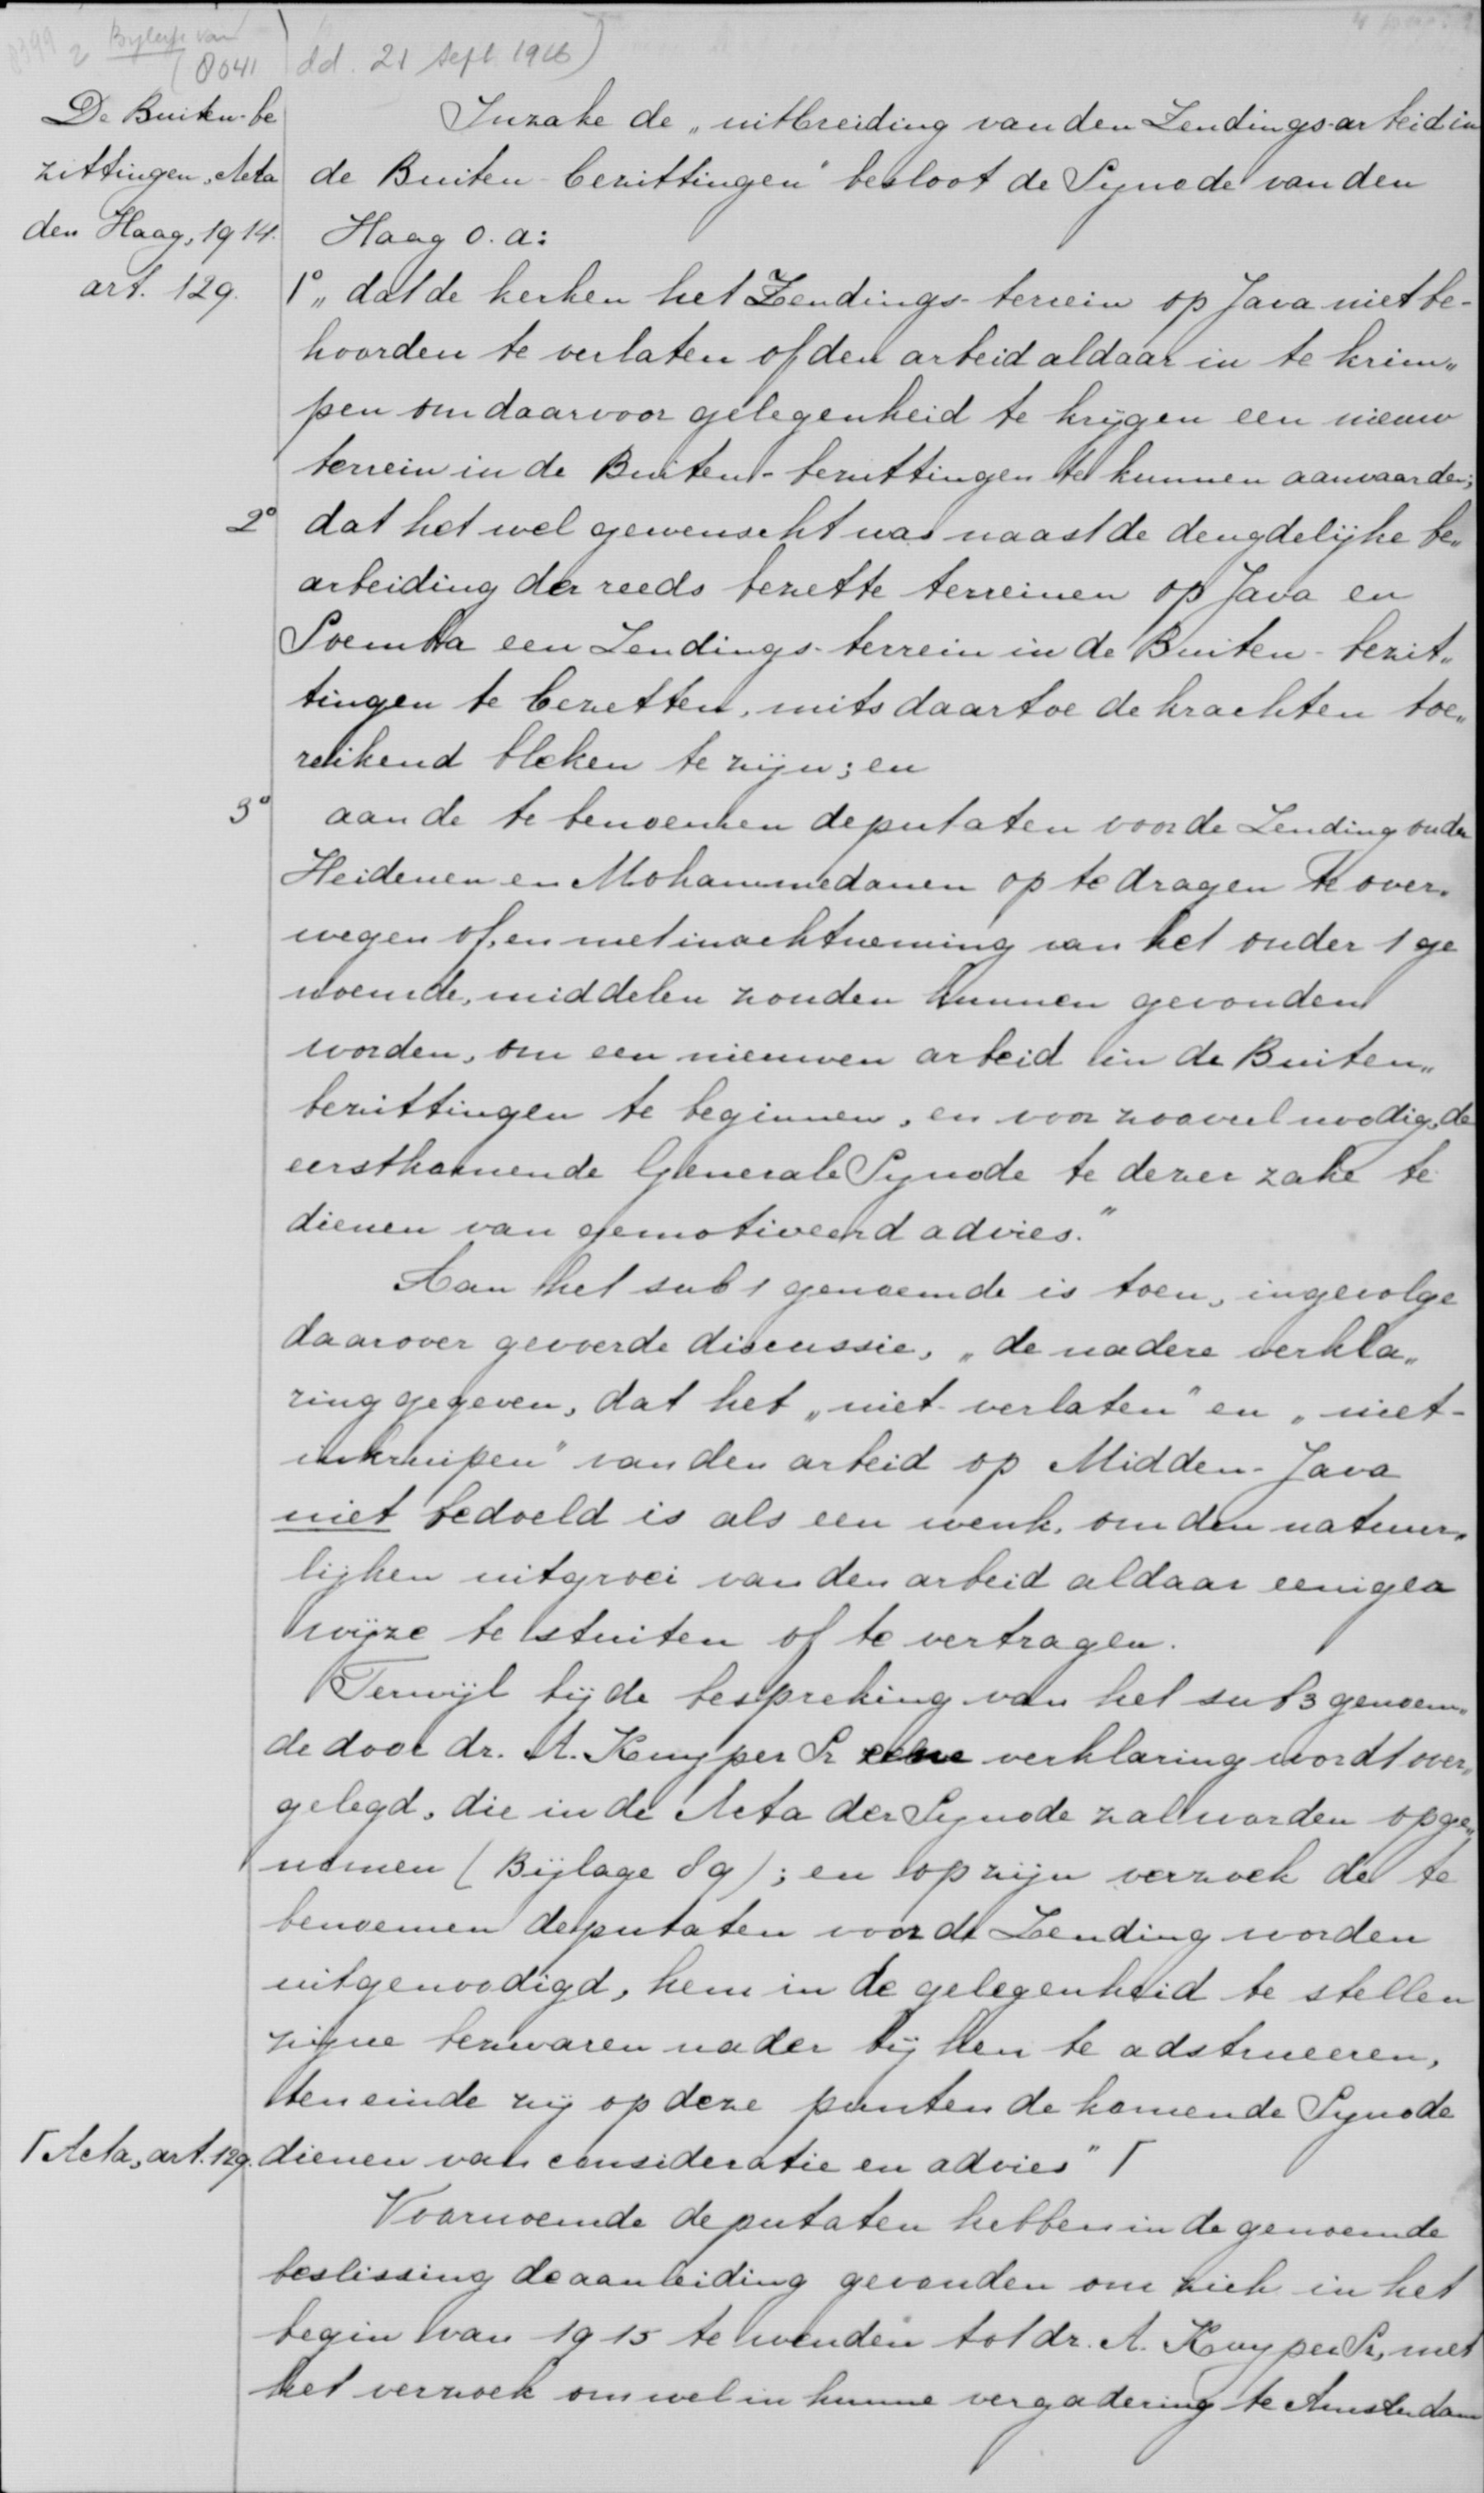 Bylage van
(8041 dd. 21 Sept 1916)
De Buiten-be
zittingen. Acta
den Haag, 1914.
art. 129.
Inzake de „uitbreiding van den Zendings-arbeid in
de Buiten-bezittingen" besloot de Synode van den
Haag o.a:
1° „dat de kerken het Zendings-terrein op Java niet be-
hoorden te verlaten of den arbeid aldaar in te krim„
pen om daarvoor gelegenheid te krijgen een nieuw
terrein in de Buiten-bezittingen te kunnen aanvaarden;
2° dat het wel gewenscht was naast de deugdelijke be„
arbeiding der reeds bezette terreinen op Java en
Soemba een Zendings-terrein in de Buiten-bezit„
tingen te bezetten, mits daartoe de krachten toe„
reikend bleken te zijn; en
3° aan de te benoemen deputaten voor de Zending onder
Heidenen en Mohammedanen op te dragen te over„
wegen of, en met inachtneming van het onder 1 ge
noemde, middelen zouden kunnen gevonden
worden, om een nieuwen arbeid in de Buiten„
bezittingen te beginnen, en voor zooveel noodig, de
eerstkomende Generale Synode te dezer zake te
dienen van gemotiveerd advies."
Aan het sub 1 genoemde is toen, ingevolge
daarover gevoerde discussie, „de nadere verkla„
ring gegeven, dat het „niet-verlaten" en „niet-
inkrimpen" van den arbeid op Midden-Java
niet bedoeld is als een wenk, om den natuur„
lijken uitgroei van den arbeid aldaar eeniger
wijze te stuiten of te vertragen.
Terwijl bij de bespreking van het sub 3 genoem„
de door dr. A. Kuyper Sr eene verklaring wordt over„
gelegd, die in de Acta der Synode zal worden opge„
nomen (Bijlage 89); en op zijn verzoek de te
benoemen deputaten voor de Zending worden
uitgenoodigd, hem in de gelegenheid te stellen
zijne bezwaren nader bij hen te adstrueeren,
ten einde zij op deze punten de komende Synode
Γ Acta, art. 129. dienen van consideratie en advies" Γ
Voornoemde deputaten hebben in de genoemde
beslissing de aanleiding gevonden om zich in het
begin van 1915 te wenden tot dr. A. Kuyper Sr, met
het verzoek om wel in hunne vergadering te Amsterdam